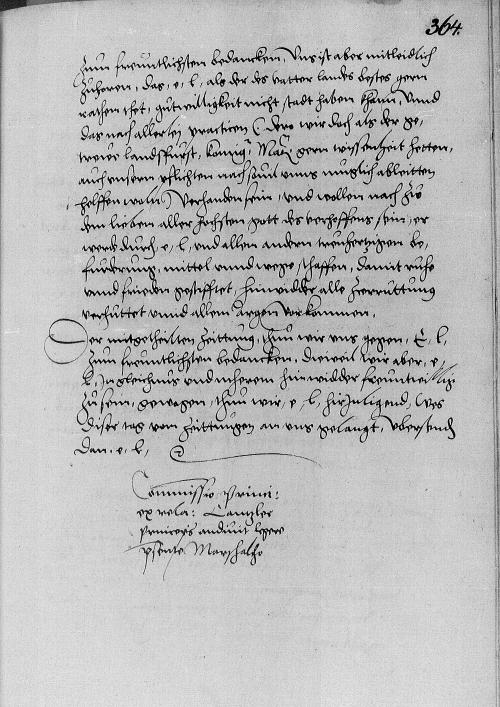 364.
Zum freuntlichsten bedancken, Uns ist aber mitleidlich
Zuhoren, das, e, l, als der des vatter landes bestes gern
rathen thet, gutwilligkeit nicht stadt haben khann, Unnd
das nach allerley practicen (dero wir doch als der ge-
trewe landsfurst, konig Mat gern wissenheit hetten,
auch unsern pflichten nach, sovil uns muglich ableitten
helffen woln) verhanden sein, und wollen nach zu
dem lieben aller hochsten gott des verhoffens sein, er
werde durch, e, l, und allen andern treuhertzigen be-
furderung, mittel unnd wege, schaffen, damit ruhe
unnd frieden gestifftet, hinwidder alle Zerruttung
verhuttet unnd allem argen vorkommen,
Der mitgetheilten Zeittung, thun wir uns gegen, E, l,
Zum freuntlichsten bedancken, dieweil wir aber, e,
l, In gleichnis und mherem hinwidder
Zu sein, gewogen, thun wir, e, l, hirzuligend, was
diser tag vom Zeittungen an uns gelangt, ubersend
Dan, e, l,
Commissio Princi:
ex rela: Cantzler
princeps audivit legere
psente Marschalho